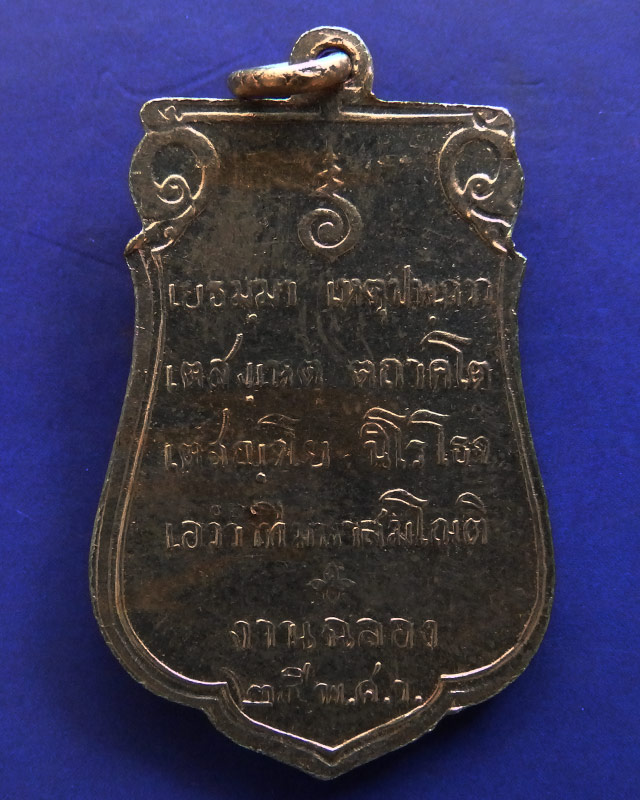 เยธมฺมา เหตุปฺปภวา
เตสํ เหตุ ตถาคโต
เตสญฺจโย นิโรโธจ
เอวํวาที มหาสมโณติ
งานฉลอง
๒๕ พ.ศ.ว.